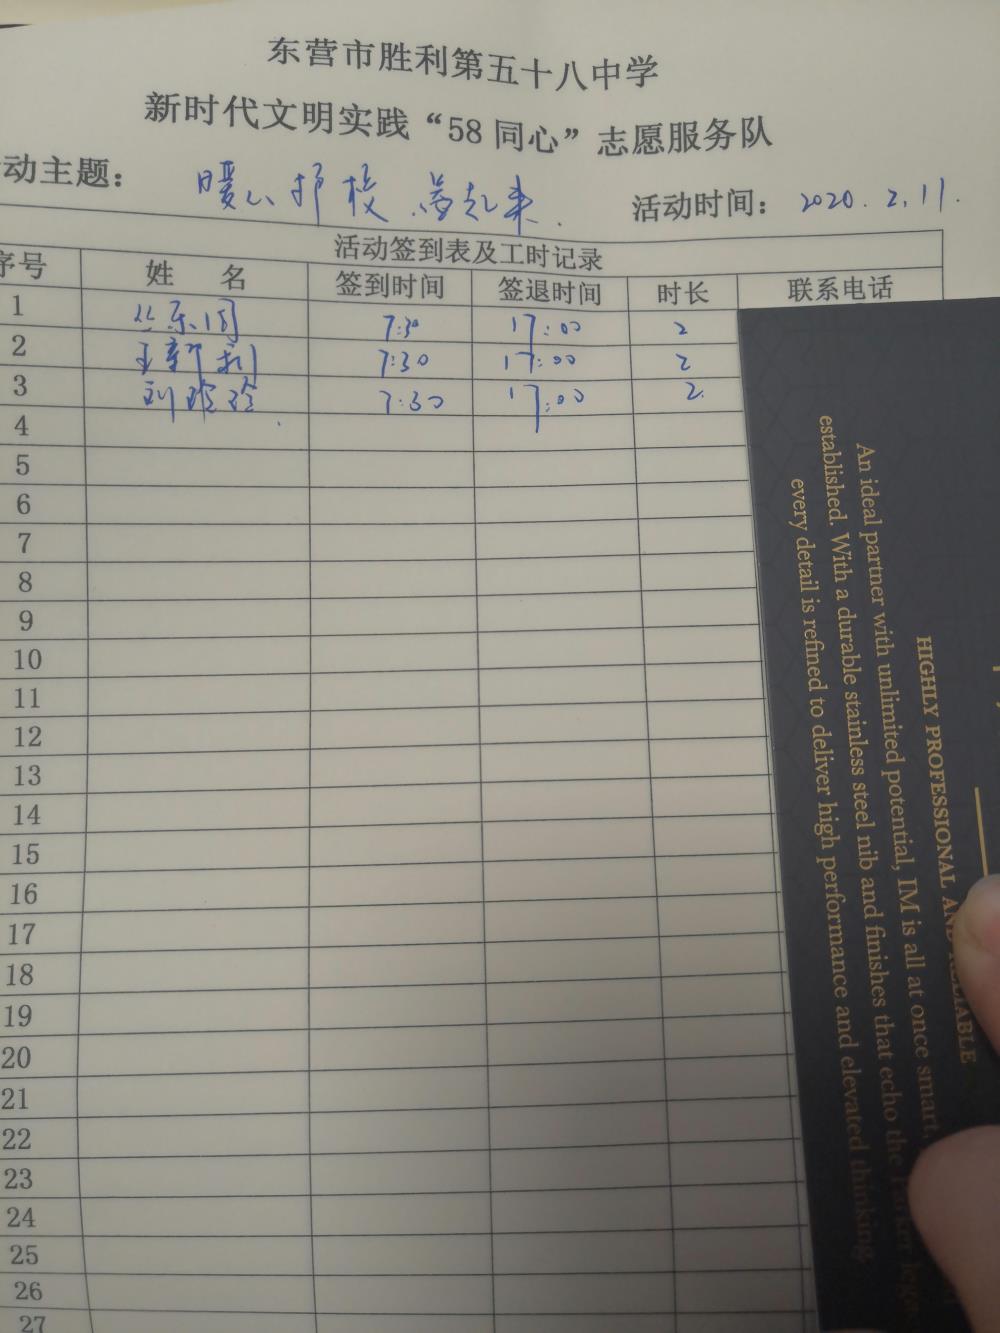 东营市胜利第五十八中学
新时代文明实践“58同心”志愿服务队
动主题： 暖心护校 岗起来. 活动时间： 2020.2.11.
活动签到表及工时记录
序号 姓 名 签到时间 签退时间 时长 联系电话
1 7:30 17:00 2
2 王新利 7:30 17:00 2
3 刘玲玲 7:30 17:00 2.
4
5
6
7
8
9
10
11
12
13
14
15
16
17
18
19
20
21
22
23
24
25
26
27
HIGHLY PROFESSIONAL AND RELIABLE
An ideal partner with unlimited potential, IM is all at once smart,
established. With a durable stainless steel nib and finishes that echo the Parker
every detail is refined to deliver high performance and elevated thinking.